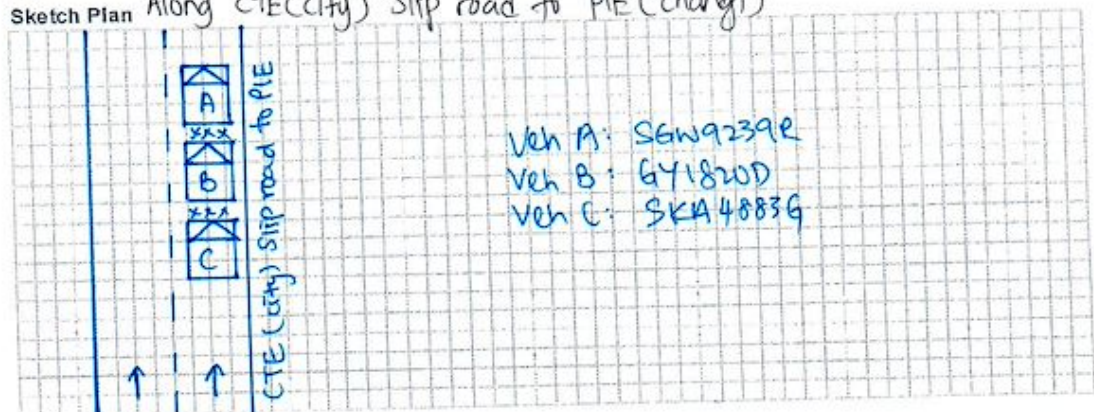 Sketch Plan Along CTE(City) Slip road to PIE (Changi)
A
xxx
B
xxx
C
CTE (City) Slip road to PIE
Veh A: SGW9239R
Veh B: GY1820D
Veh C: SKA4883G